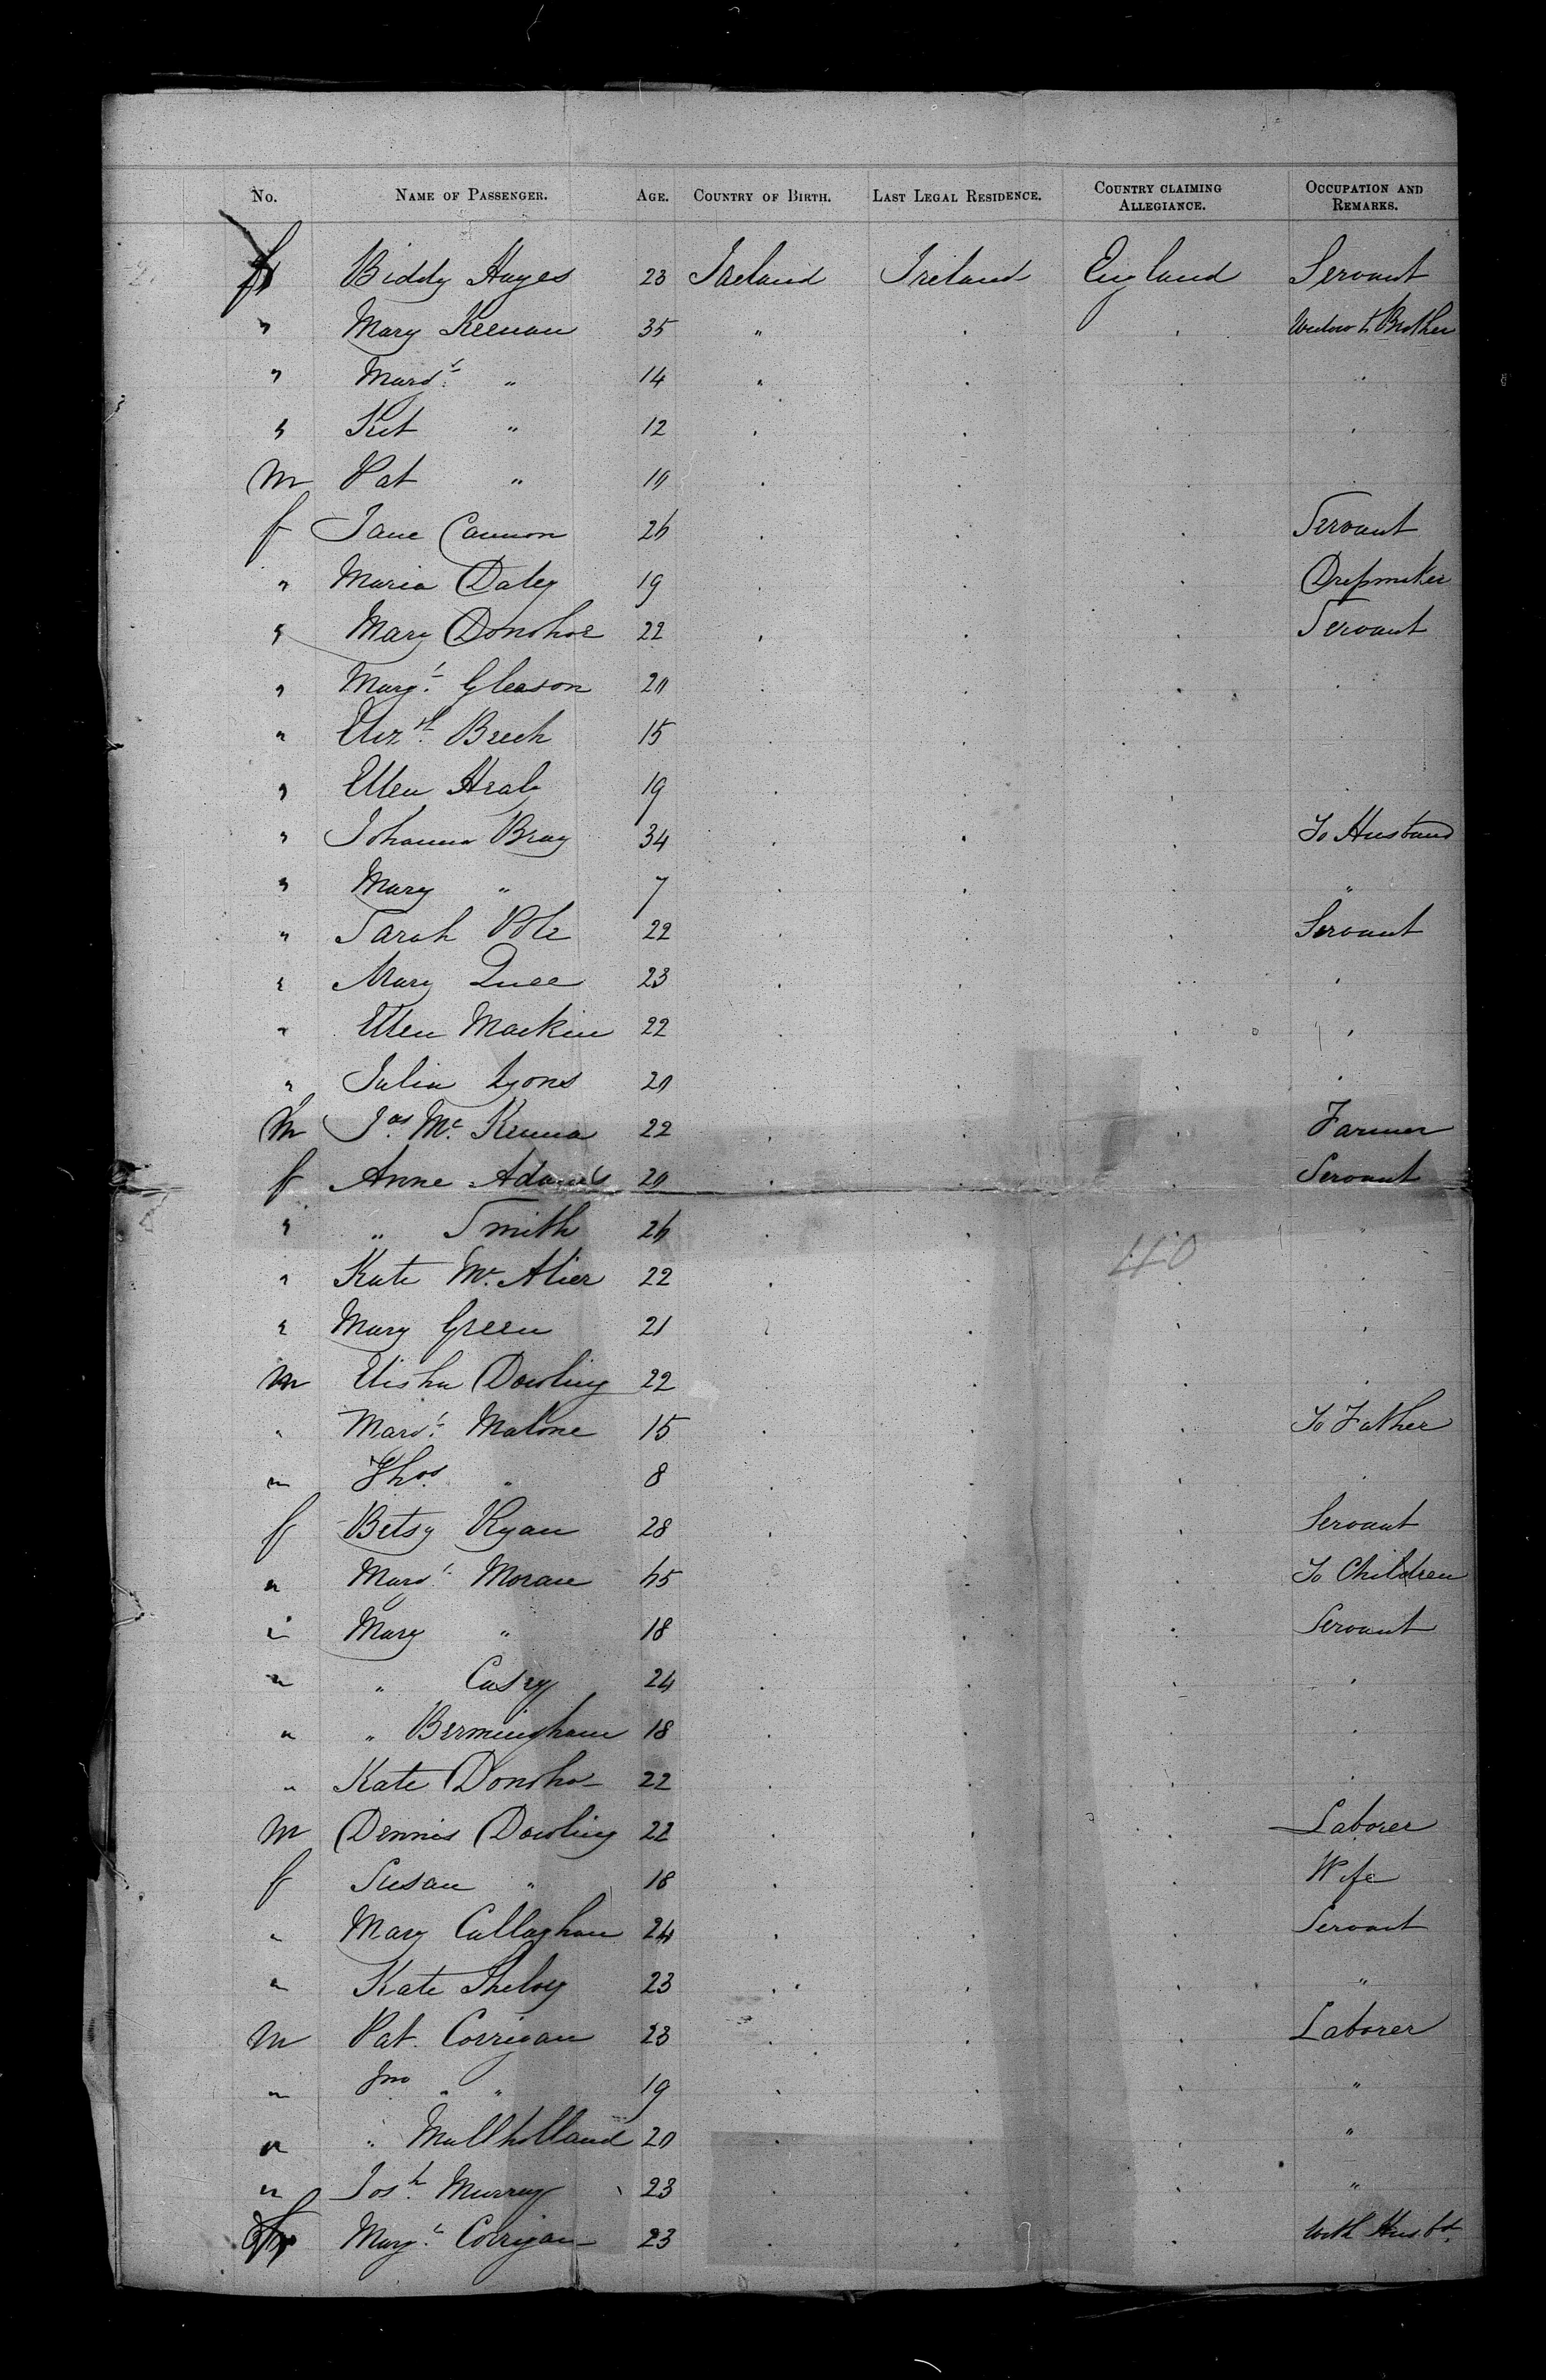 No. Name of Passenger. Age. Country of Birth. Last Legal Residence. Country claiming Allegiance. Occupation and Remarks.
f Biddy Hayes 23 Ireland Ireland England Servant
" Mary Keenan 35 " " " Widow to Brother
" Margt " 14 " " " "
" Kit " 12 " " " "
m Pat " 10 " " "
f Jane Cannon 26 " " " Servant
" Maria Daley 19 " " " Dressmaker
" Mary Donohoe 22 " " " Servant
" Margt. Gleason 20 " " " "
" Elizth. 15 " " " "
" Ellen Healy 19 " " " "
" Johanna Bray 34 " " " To Husband
" Mary " 7 " " " "
" Sarah Pole 22 " " " Servant
" Mary 23 " " " "
" Ellen Mackin 22 " " " "
" Julia Lyons 20 " " " "
m Jas. Mc. Kenna 22 " " " Farmer
f Anne Adams 20 " " " Servant
" " Smith 26 " " " "
40
" Kate Mc. Alier 22 " " " "
" Mary Green 21 " " " "
m Elisha Dowling 22 " " " "
" Margt. Malone 15 " " " To Father
m Thos. " 8 " " " "
f Betsy Ryan 28 " " " Servant
" Margt. Moran 65 " " " To Children
" Mary " 18 " " " Servant
" " Casey 24 " " " "
" " Bermingham 18 " " " "
" Kate Donohoe 22 " " " "
m Dennis Dowling 22 " " " Laborer
f Susan " 18 " " " Wife
" Mary Callaghan 24 " " " Servant
" Kate 23 " " " "
m Pat. Corrigan 23 " " " Laborer
" Jno " 19 " " " "
" " Mullholland 20 " " " "
" Josh. Murray 23 " " " "
f Margt. Corrigan 23 " " " With Husbd.